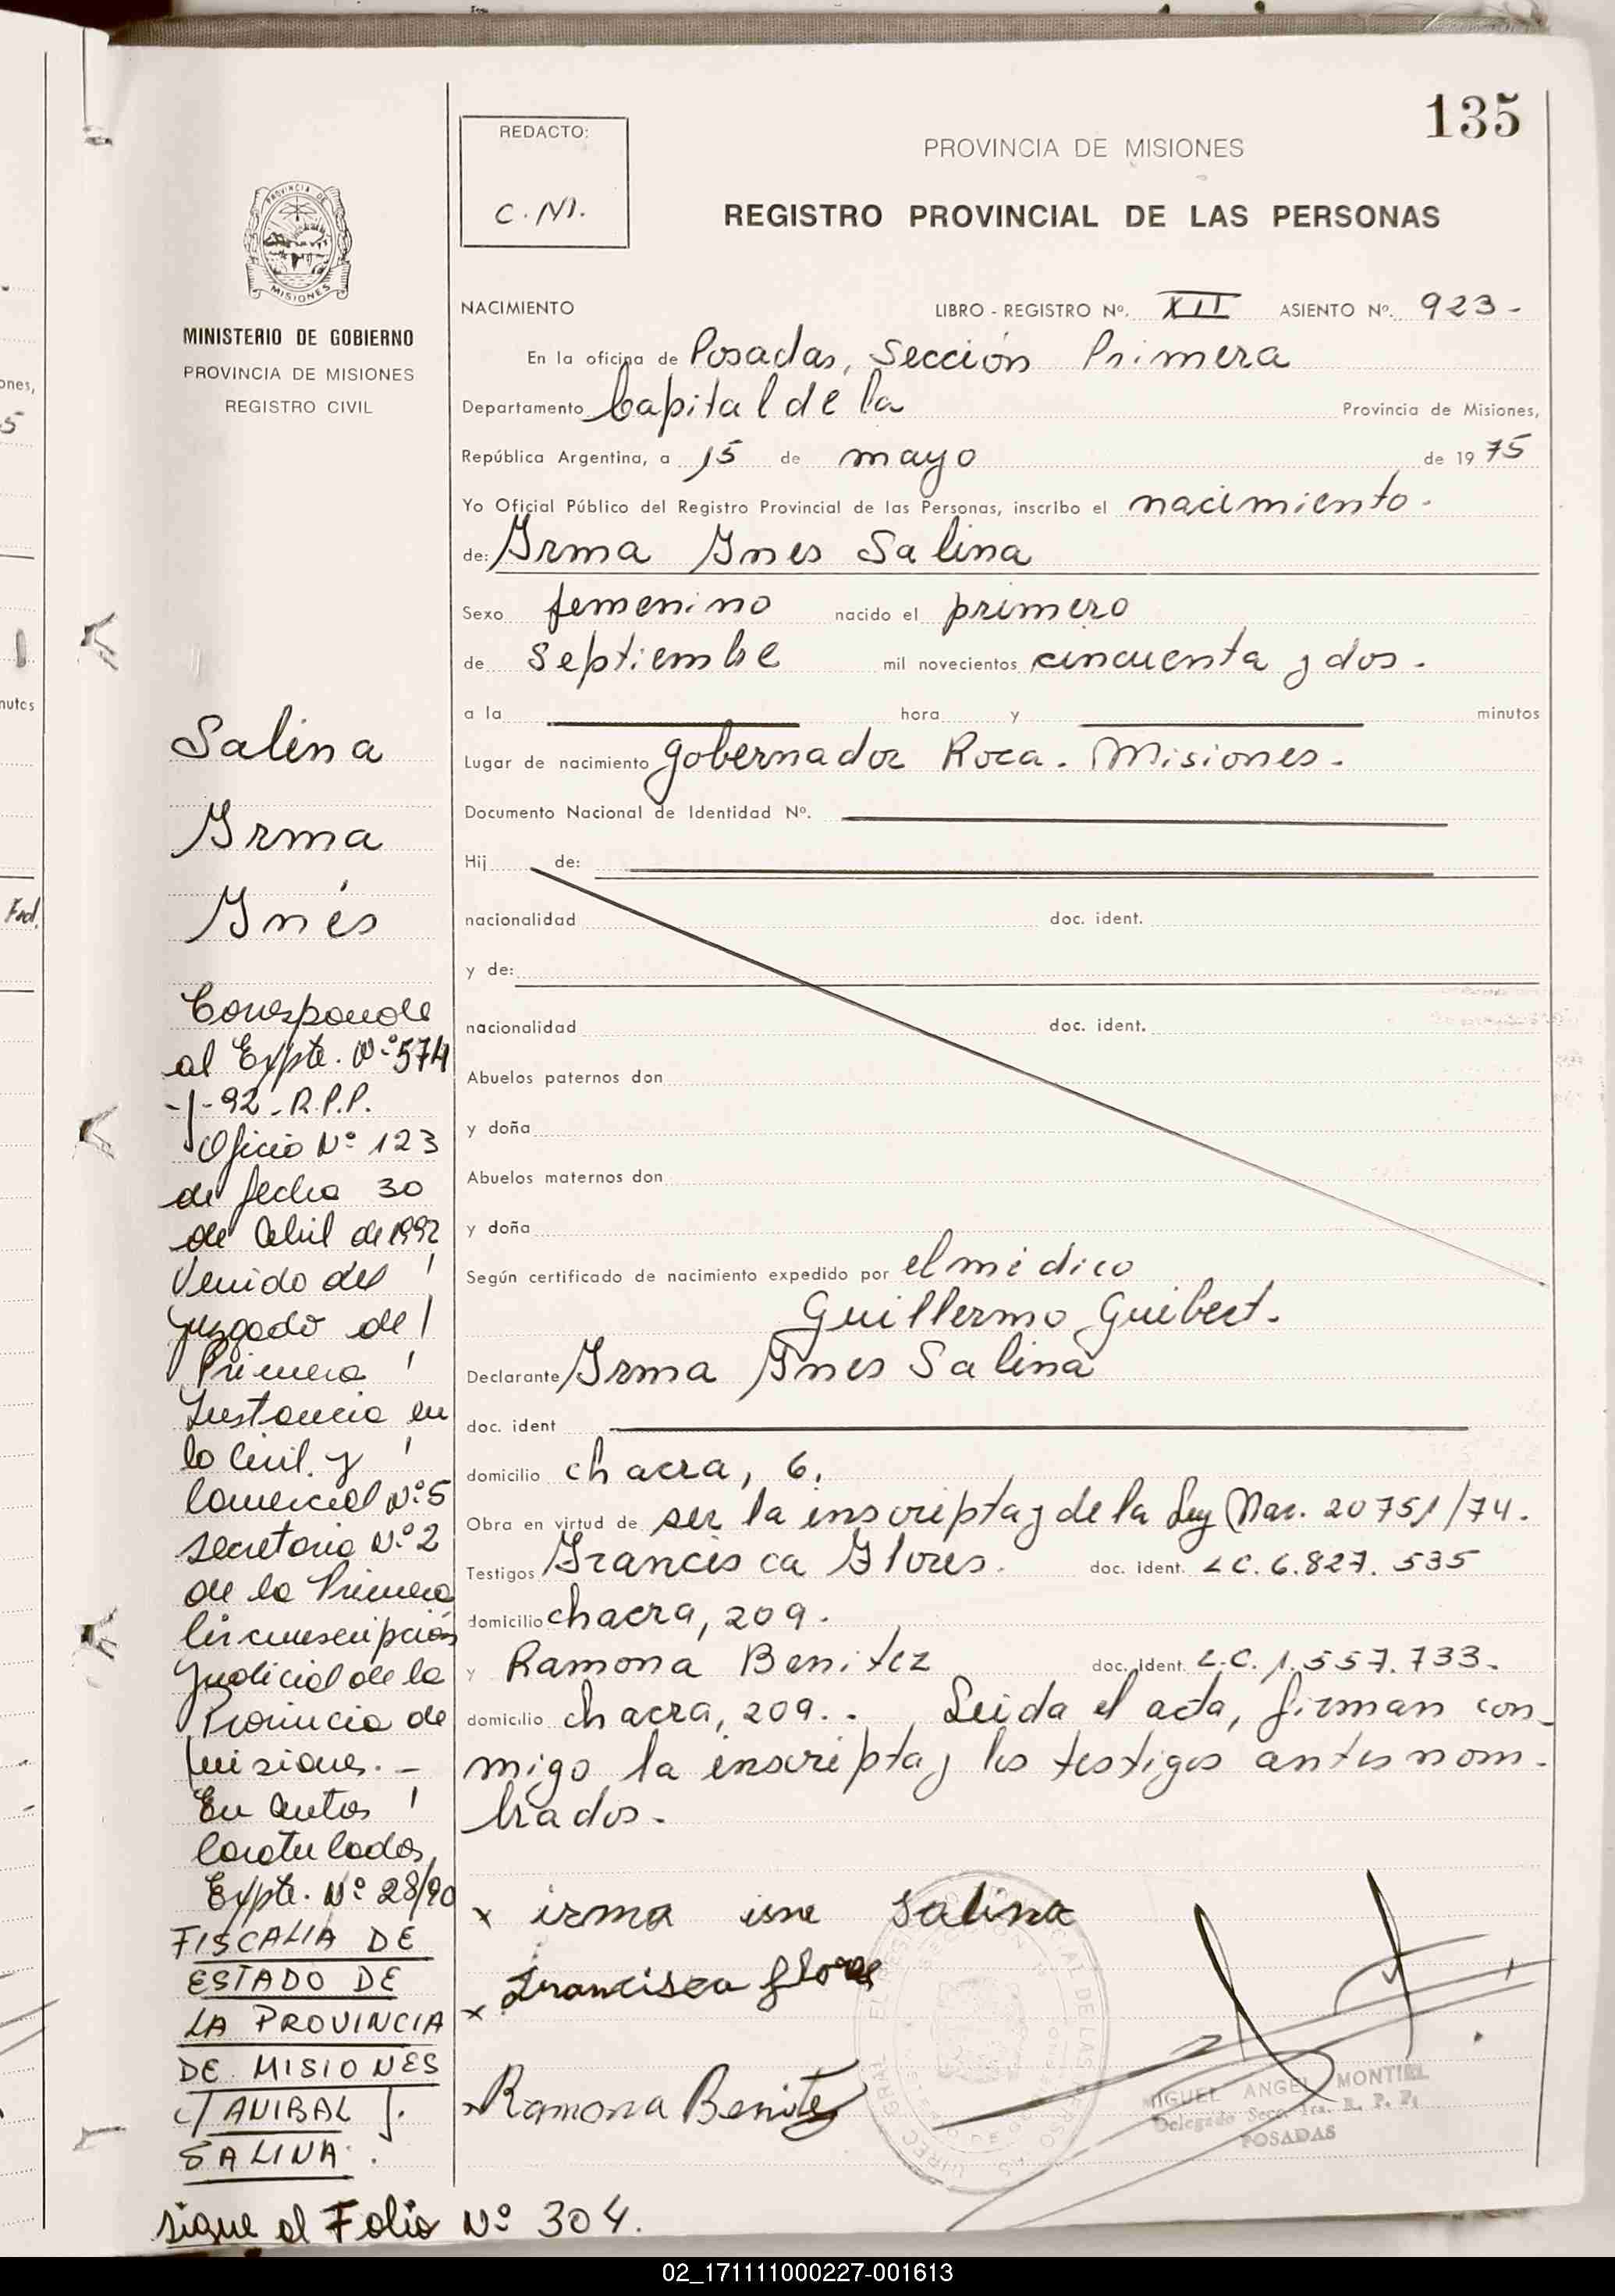 135
REDACTO:
C.M.
PROVINCIA DE MISIONES
REGISTRO PROVINCIAL DE LAS PERSONAS
PROVINCIA DE
MISIONES
MINISTERIO DE GOBIERNO
PROVINCIA DE MISIONES
REGISTRO CIVIL
NACIMIENTO LIBRO - REGISTRO Nº. XII ASIENTO Nº. 923-
En la oficina de Posadas, Sección Primera
Departamento Capital de la Provincia de Misiones,
República Argentina, a 15 de mayo de 1975
Yo Oficial Público del Registro Provincial de las Personas, inscribo el nacimiento.
de: Irma Ines Salina
Sexo femenino nacido el primero
de Septiembre mil novecientos cincuenta y dos.
a la hora y minutos
Lugar de nacimiento gobernador Roca. Misiones.
Documento Nacional de Identidad Nº.
Hij de:
nacionalidad doc. ident.
y de:
nacionalidad doc. ident.
Abuelos paternos don
y doña
Abuelos maternos don
y doña
Según certificado de nacimiento expedido por el médico
Guillermo Guibert.
Declarante Irma Ines Salina
doc. ident
domicilio chacra, 6.
Obra en virtud de ser la inscripta y de la Ley Nac. 20751/74.
Testigos Francisca Flores. doc. ident. LC. 6.827.535
domicilio chacra, 209.
y Ramona Benitez doc. ident. L.C. 1.557.733.
domicilio chacra, 209.. Leida el acta, firman con-
migo la inscripta y los testigos antes nom-
brados.
x irma isne Salina
x Francisca flores
x Ramona Benitez
MIGUEL ANGEL MONTIEL
Delegado Secc. 1ra. R. P. P.
POSADAS
Salina
Irma
Inés
Corresponde
al Expte. Nº 574
-J-92-R.P.P.
Oficio Nº 123
de fecha 30
de Abril de 1992
Venido del
Juzgado de
Primera
Instancia en
lo Civil y
Comercial Nº 5
secretaria Nº 2
de la Primera
Circunscripción
Judicial de la
Provincia de
Misiones. -
En autos
Caratulados,
Expte. Nº 28/90
FISCALIA DE
ESTADO DE
LA PROVINCIA
DE MISIONES
C/ ANIBAL J.
SALINA.
sigue al Folio Nº 304.
02_171111000227-001613